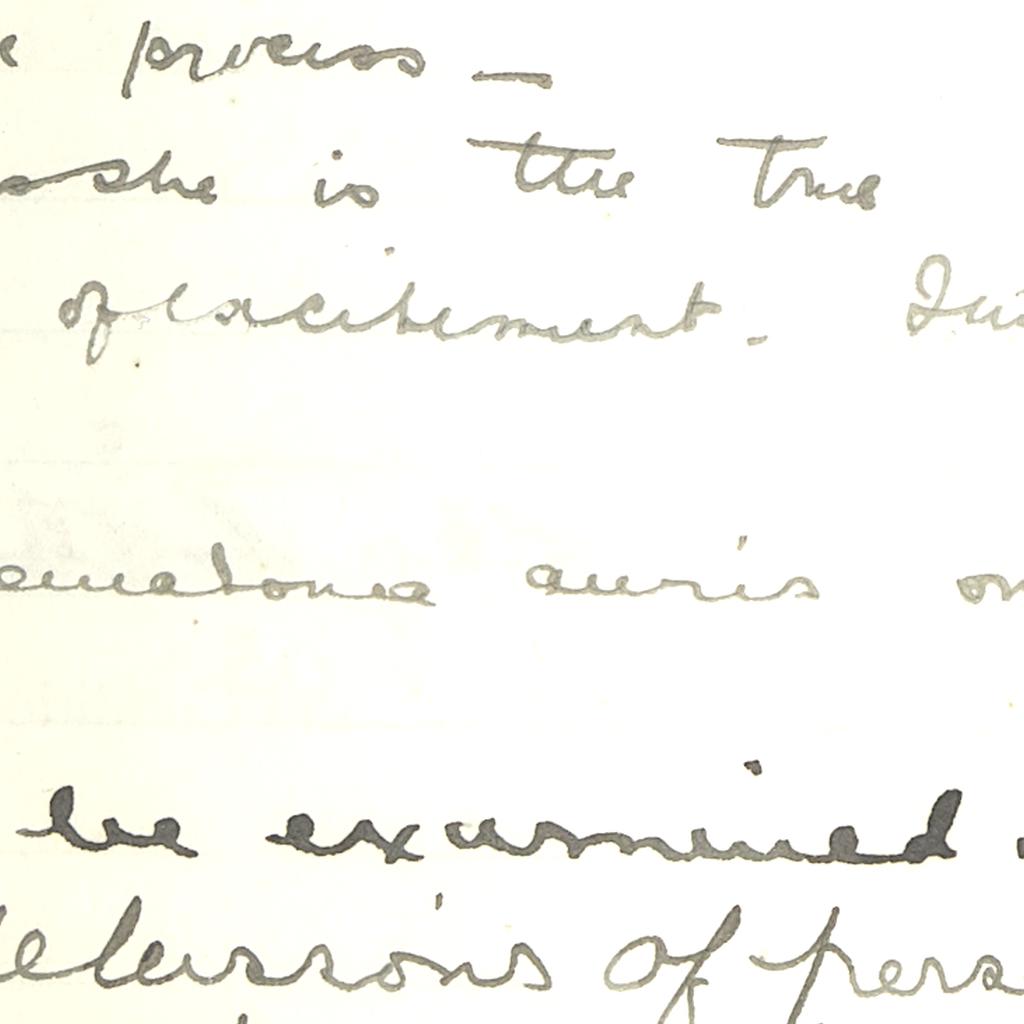 process —
she is the true
of excitement.
ematoma auris on
be examined
delusions of pers